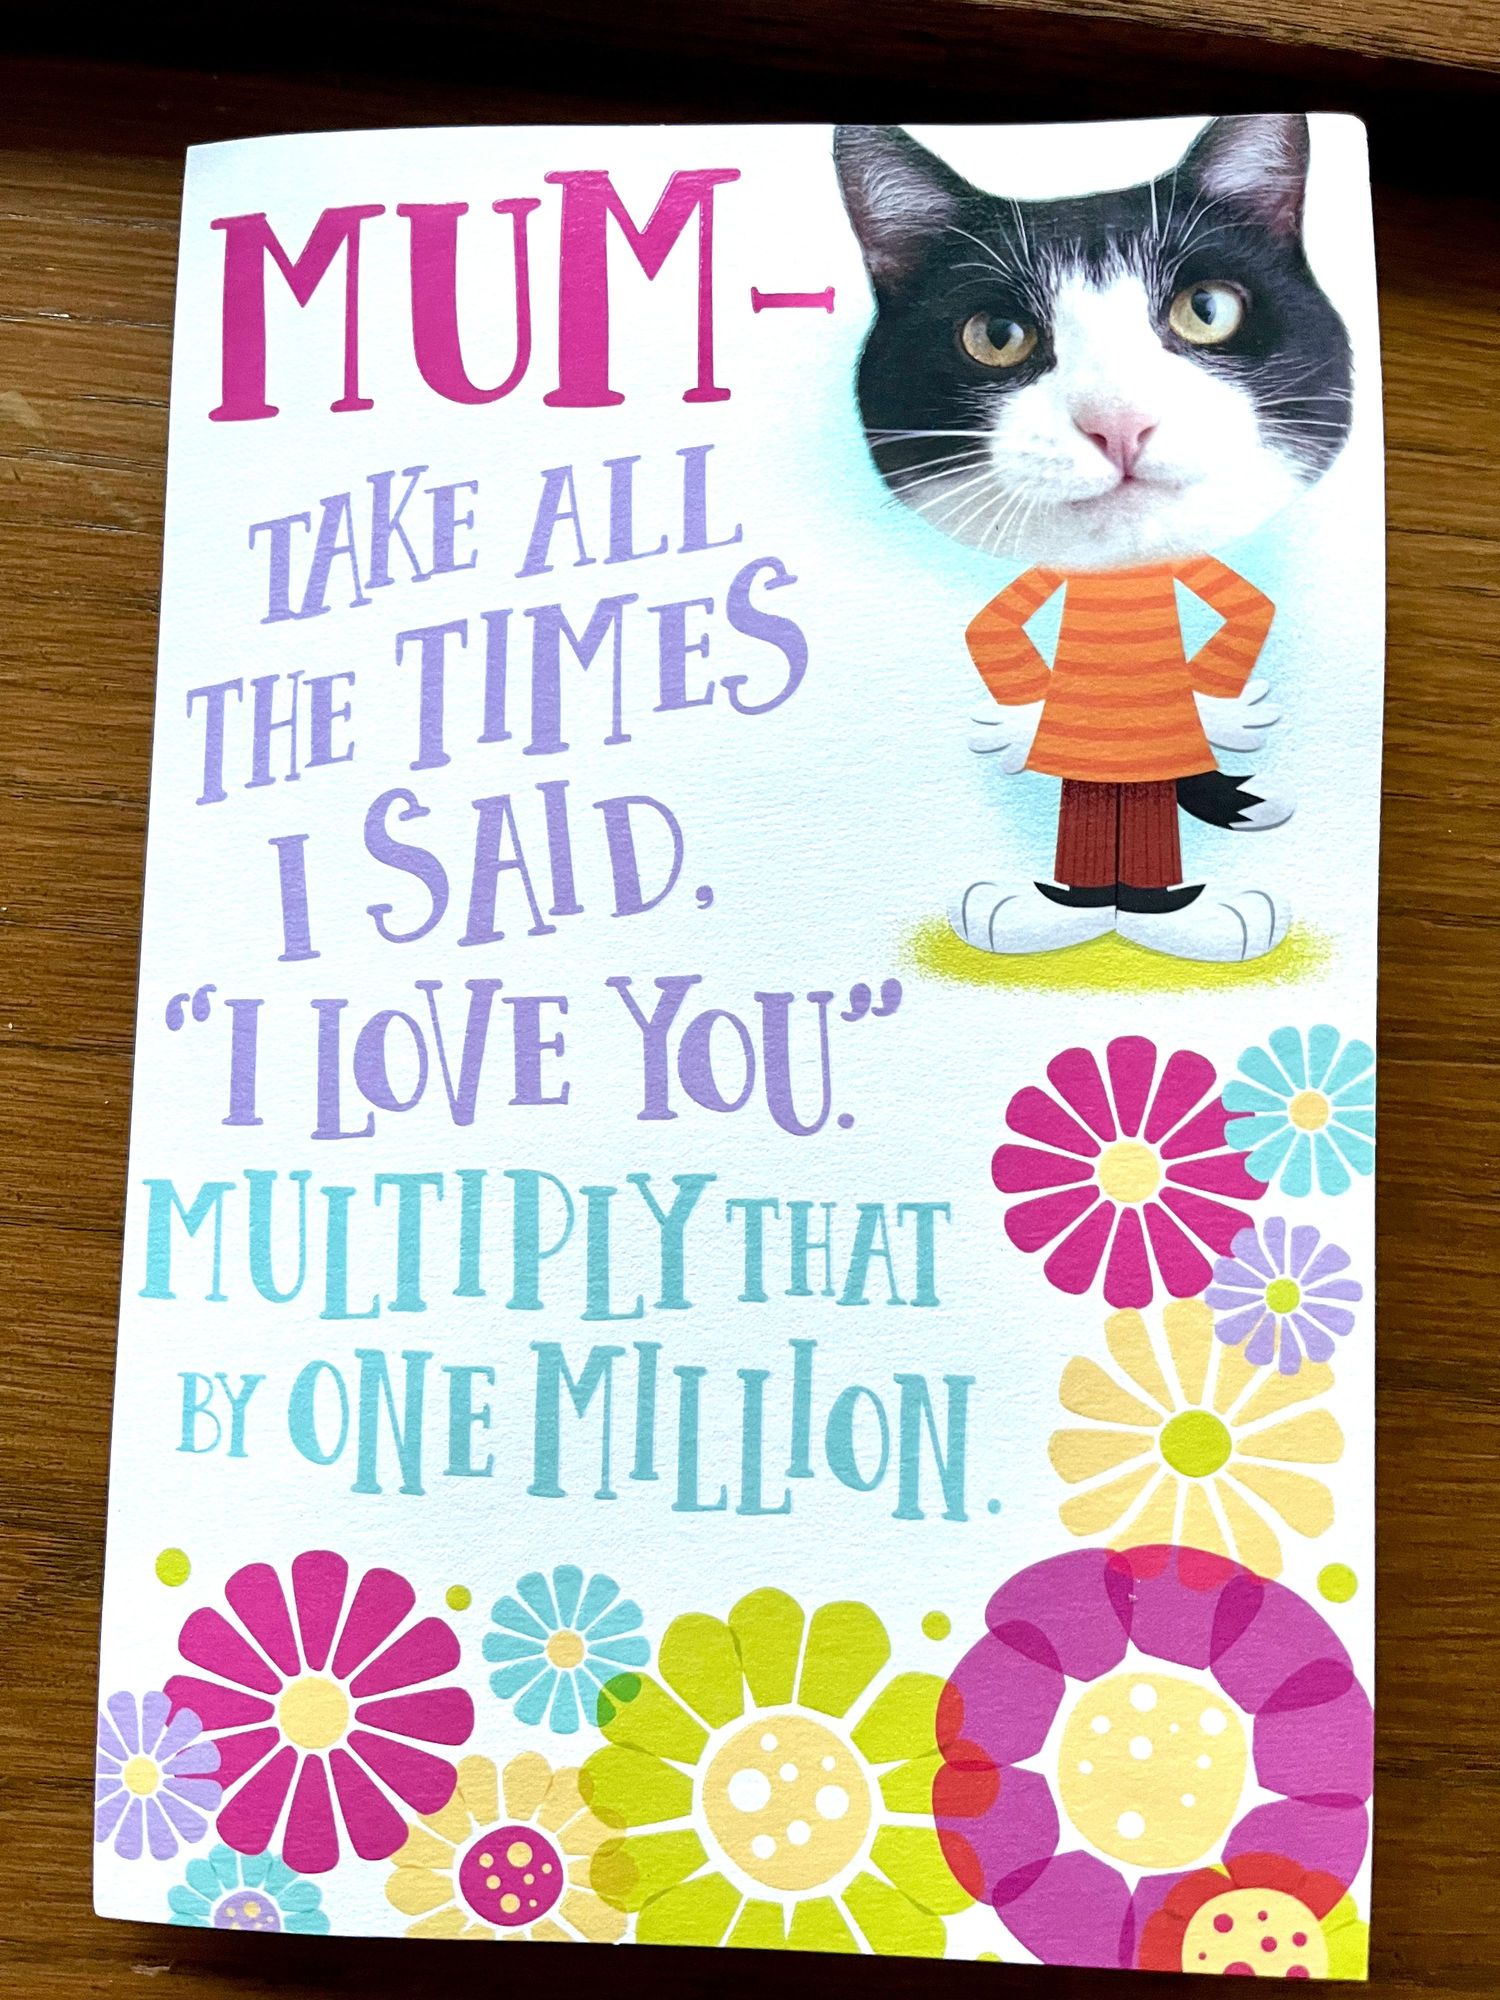 MUM-
TAKE ALL
THE TIMES
I SAID,
“I LOVE YOU.”
MULTIPLY THAT
BY ONE MILLION.